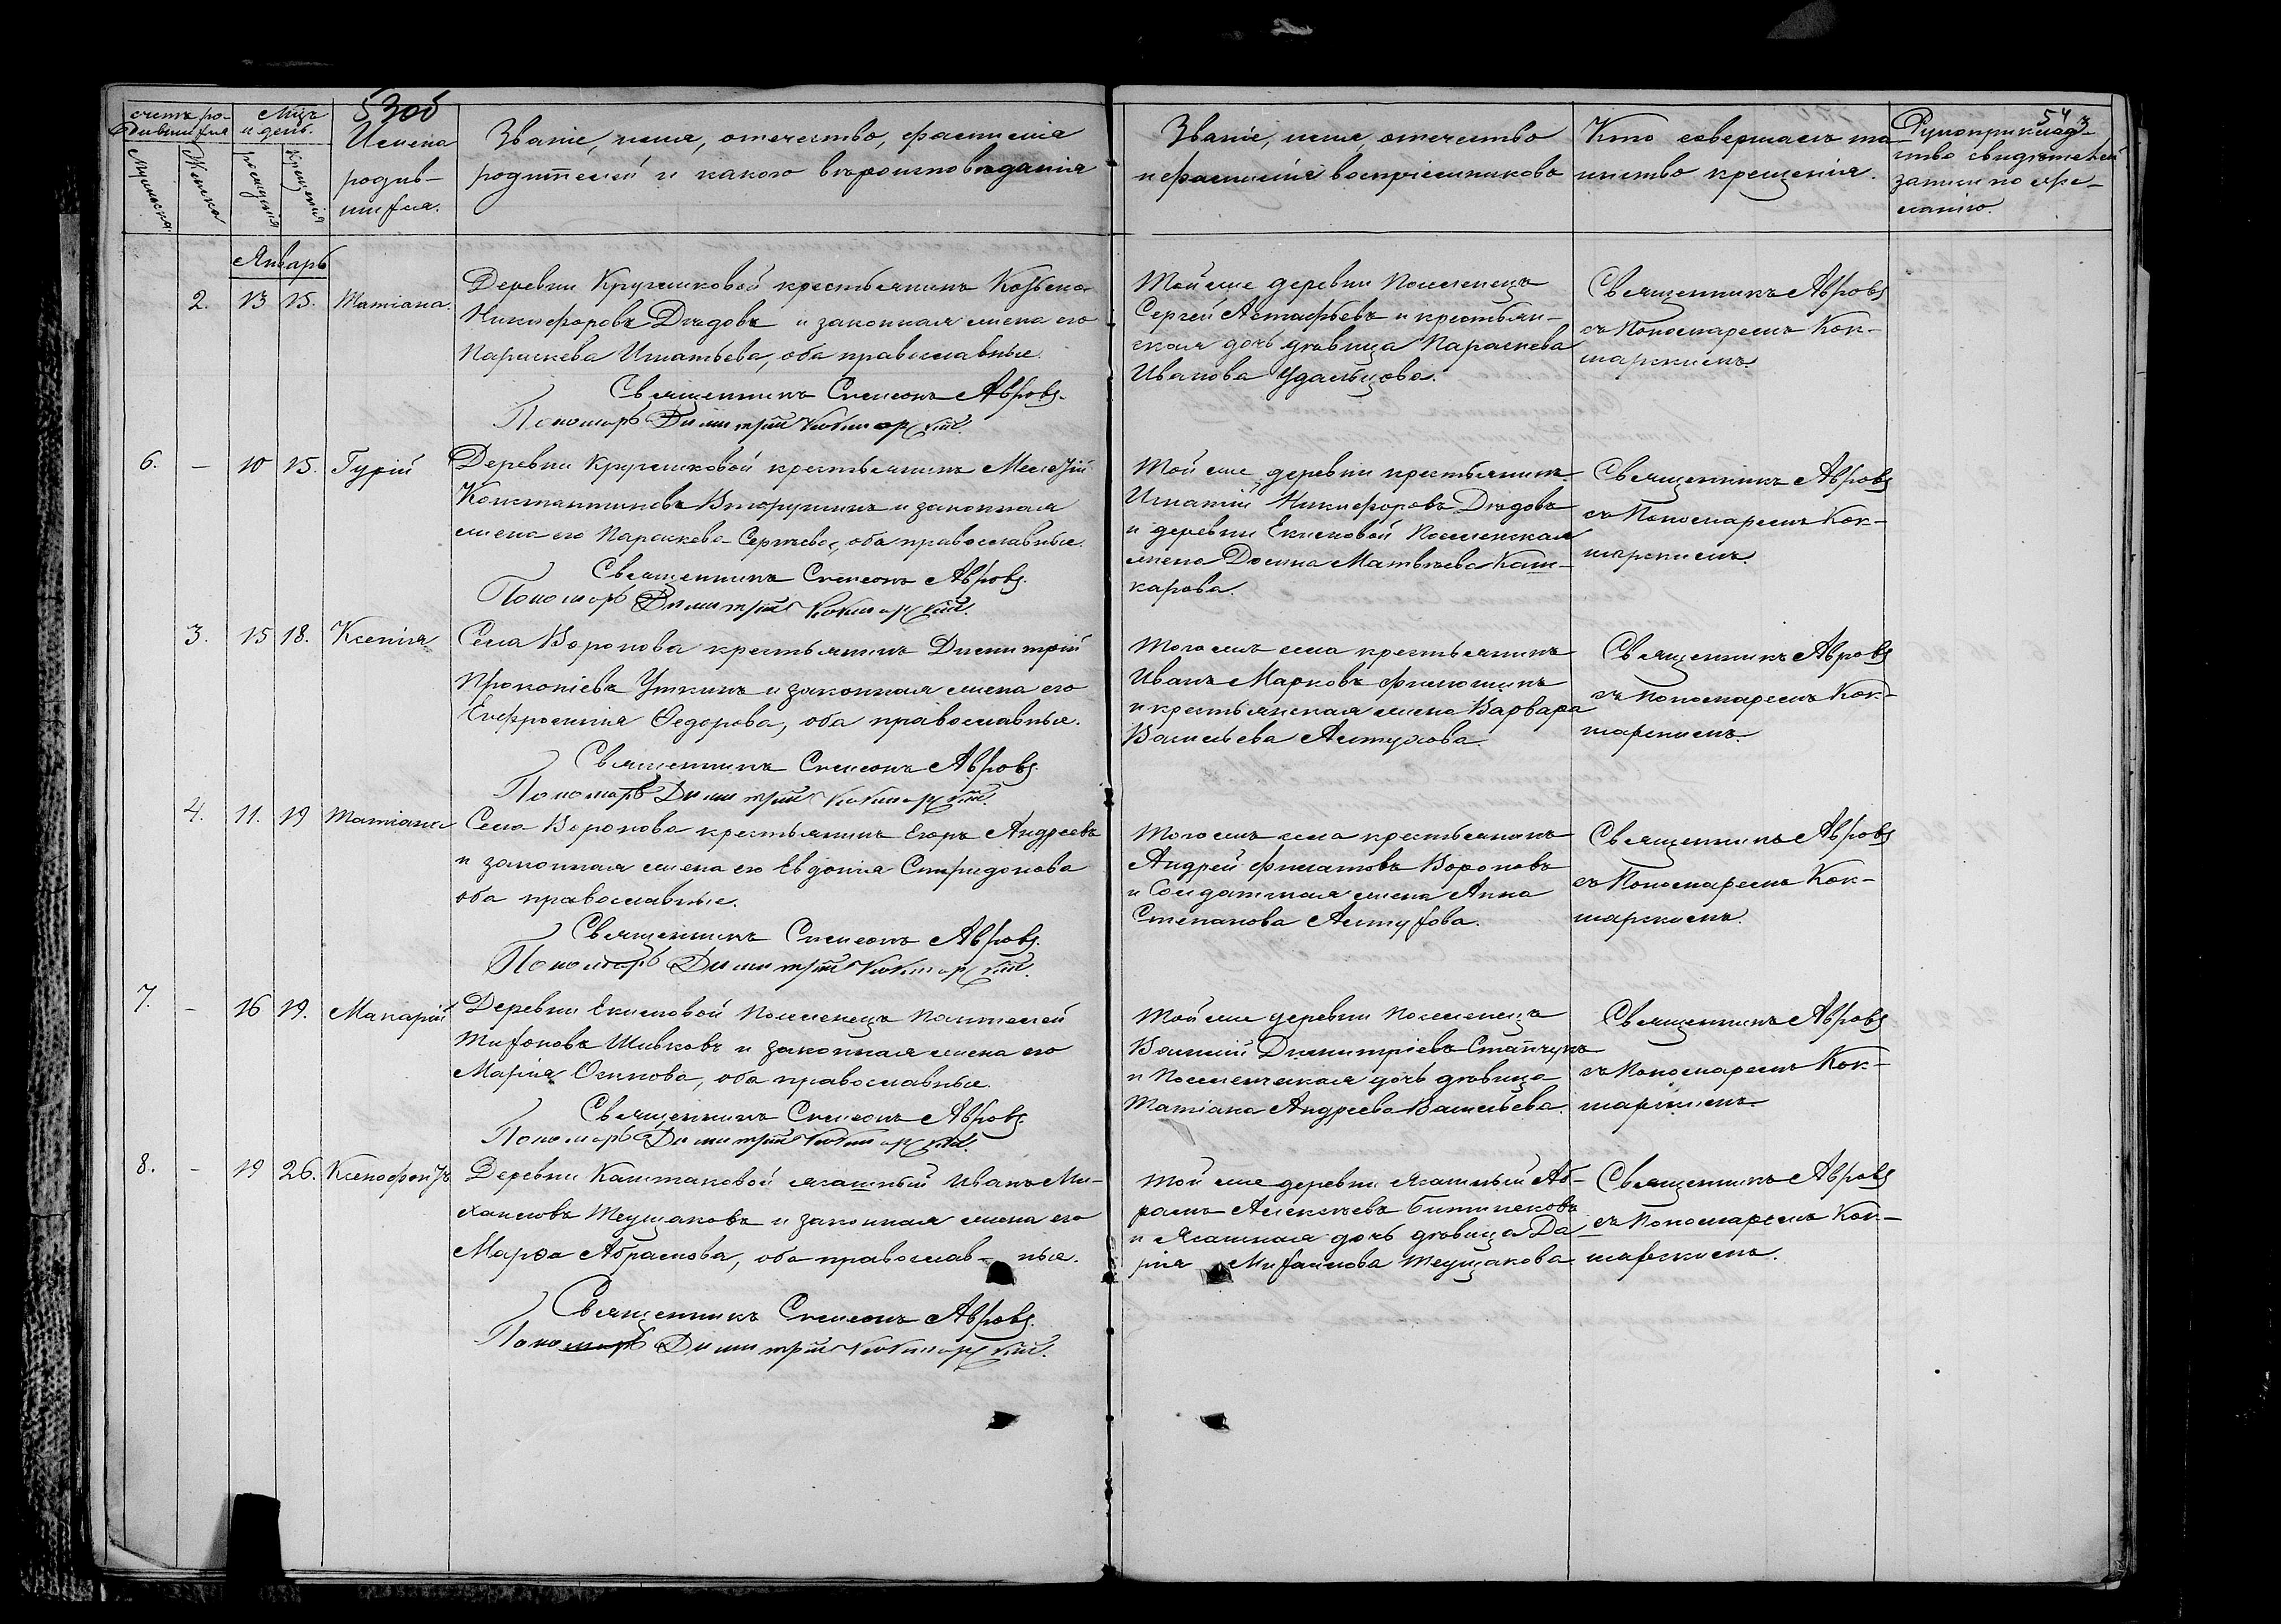 53об
54
3
Счетъ ро-
дившихся
Мужеска
Женска
Мѣц.
и день.
рожденія
крещенія
Имена
родив-
шихся.
Званіе, имя, отчество, фамилія
родителей и какого вѣроисповѣданія
Званіе, имя, отчество
и фамилія воспріемниковъ
Кто совершалъ та
инство крещенія.
Рукоприклад-
ство свидѣтелей
записи по же-
ланію.
Январь
2. 13 15. Татіана.
Деревни Кругликовой крестьянинъ Козьма
Никифоровъ Дѣдовъ и законная жена его
Параскева Игнатьева, оба православные.
Священникъ Симеонъ Авровъ.
Пономарь Димитрій Кокшарскій.
Тойже деревни Поселенецъ
Сергей Астафьевъ и крестьян-
ская дочь дѣвица Параскева
Иванова Удальцова.
Священникъ Авровъ
съ Пономаремъ Кок-
шарскимъ.
6. – 10 15. Гурій
Деревни Кругликовой крестьянинъ
Константиновъ Вторушинъ и законная
жена его Параскева Сергѣева, оба православные.
Священникъ Симеонъ Авровъ.
Пономарь Димитрій Кокшарскій.
Той же деревни крестьянинъ
Игнатій Никифоровъ Дѣдовъ
и деревни Екимовой Поселенская
жена Домна Матвѣева Каш-
карова.
Священникъ Авровъ
съ Пономаремъ Кок-
шарскимъ.
3. 15 18. Ксенія
Села Воронова крестьянинъ Димитрій
Прокопіевъ Уткинъ и законная жена его
Евфросинія Ѳедорова, оба православные.
Священникъ Симеонъ Авровъ.
Пономарь Димитрій Кокшарскій.
Тогожъ села крестьянинъ
Иванъ Марковъ Филюшинъ
и крестьянская жена Варвара
Васильева Алтухова.
Священникъ Авровъ
съ Пономаремъ Кок-
шарскимъ.
4. 11. 19 Татіана
Села Воронова крестьянинъ Егоръ Андреевъ
и законная жена его Евдокія Спиридонова
оба православные.
Священникъ Симеонъ Авровъ.
Пономарь Димитрій Кокшарскій.
Тогожъ села крестьянинъ
Андрей Филатовъ Вороновъ
и Солдатская жена Анна
Степанова Алтухова.
Священникъ Авровъ
съ Пономаремъ Кок-
шарскимъ.
7. – 16 19. Макарій
Деревни Екимовой Поселенецъ Пантелей
Тихоновъ Шивковъ и законная жена его
Марія Осипова, оба православные.
Священникъ Симеонъ Авровъ.
Пономарь Димитрій Кокшарскій.
Той же деревни Поселенецъ
Василій Димитріевъ Станчукъ
и Поселенческая дочь дѣвица
Татіана Андреева Васильева.
Священникъ Авровъ
съ Пономаремъ Кок-
шарскимъ.
8. – 19 26. Ксенофонтъ
Деревни Каштаковой ясашный Иванъ Ми-
хаиловъ Теущаковъ и законная жена его
Марѳа Абрамова, оба православ- ные.
Священникъ Симеонъ Авровъ.
Пономарь Димитрій Кокшарскій.
Той же деревни Ясашный Аб-
рамъ Алексѣевъ
и Ясашная дочь дѣвица Да
рія Михаилова Теущакова
Священникъ Авровъ
съ Пономаремъ Кок-
шарскимъ.